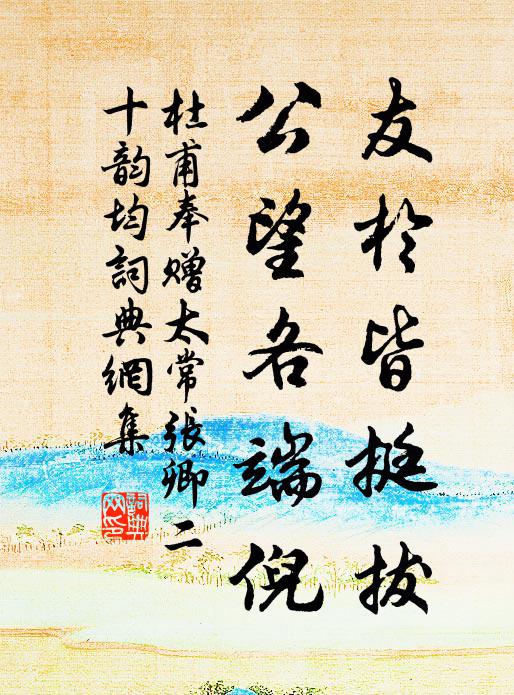 友於皆挺拔
公望各端倪
杜甫奉赠太常張卿二
十韵均詞典網集
詞典网印